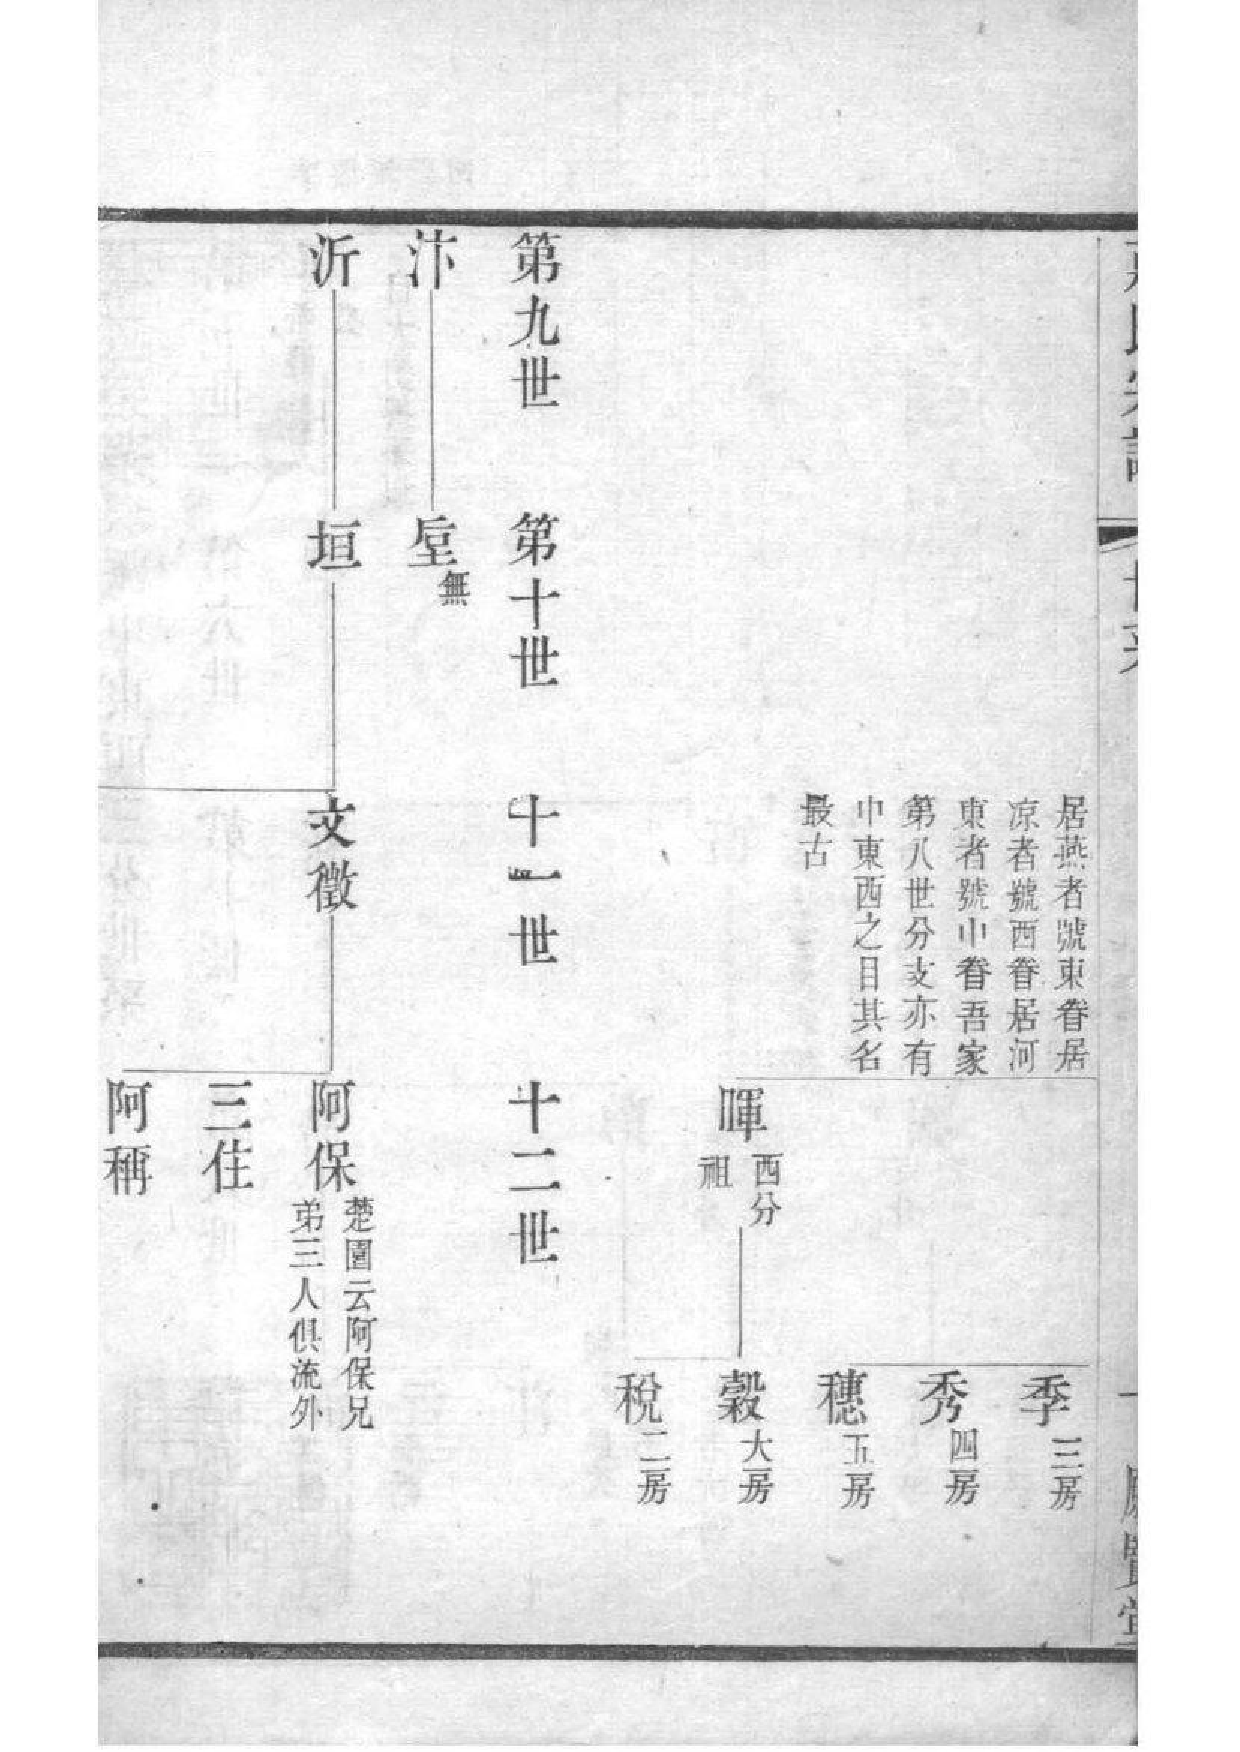 世系
居燕者號東眷居
凉者號西眷居河
東者號中眷吾家
第八世分支亦有
中東西之目其名
最古
季 三房
秀 四房
穗 五房
暉 西分
祖
穀 大房
稅 二房
第九世 第十世 十一世 十二世
汴 垕 無
沂 垣 文徵 阿保 楚園云阿保兄
弟三人俱流外
三住
阿稱